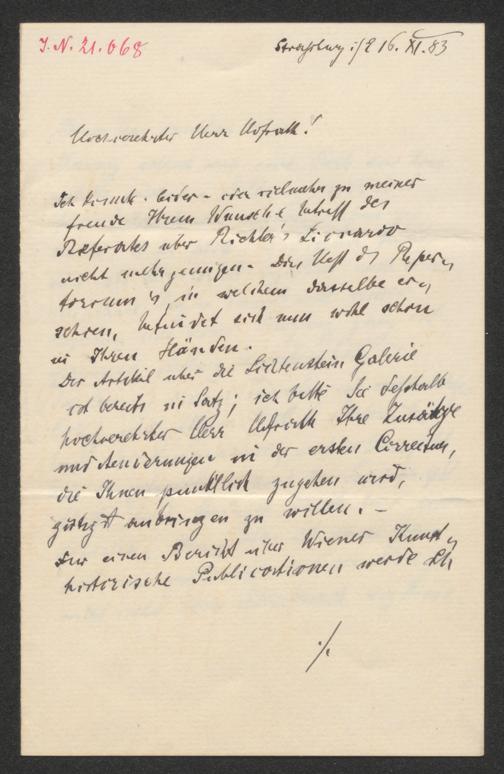 I. N. 21.068
Strassburg i/E 16. XI. 83
Hochverehrter Herr Hofrath!
Ich konnte - leider - oder vielmehr zu meiner
Freude Ihrem Wunsche betreff des
Referates über Richter's Lionardo
nicht mehr genügen. Das Heft des Reper-
toriums, in welchem dasselbe er-
schien, befindet sich nun wohl schon
in Ihren Händen.
Der Artikel über die Liechtenstein Galerie
ist bereits in Satz; ich bitte Sie deßhalb
hochverehrter Herr Hofrath Ihre Zusätze
und Aenderungen in der ersten Correctur,
die Ihnen pünktlich zugehen wird,
gütigst anbringen zu wollen. -
Für einen Bericht über Wiener Kunst-
historische Publicationen werde ich
./.